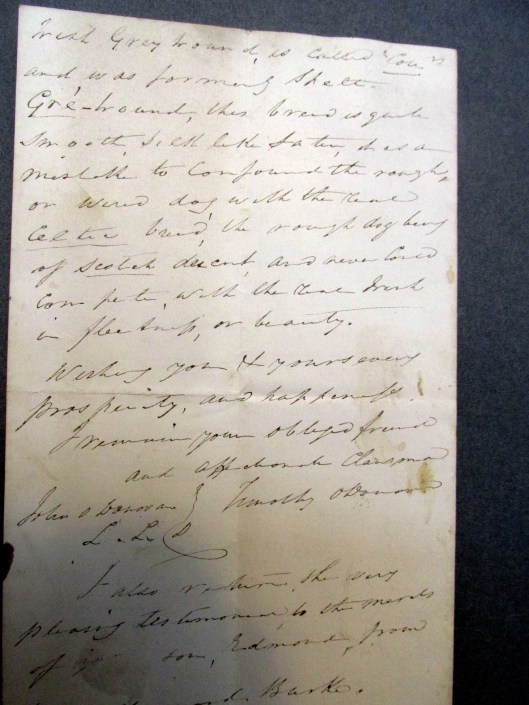 Irish Greyhound, is called "Cou"
and was formerly spelt
Gré-hound, this breed is quite
smooth, silk like Satin, it is a
mistake to confound the rough,
or wired dog, with the real
Celtic breed, the rough dog being
of Scotch descent, and never could
compete, with the real Irish
in fleetness, or beauty.
Wishing you & yours every
prosperity, and happiness.
I remain your obliged friend
and affectionate Clansman
John O Donovan } Timothy O Donovan
L. L. D
I also return, the very
pleasing testimonial, to the merits
of son, Edmond, from
Burke.